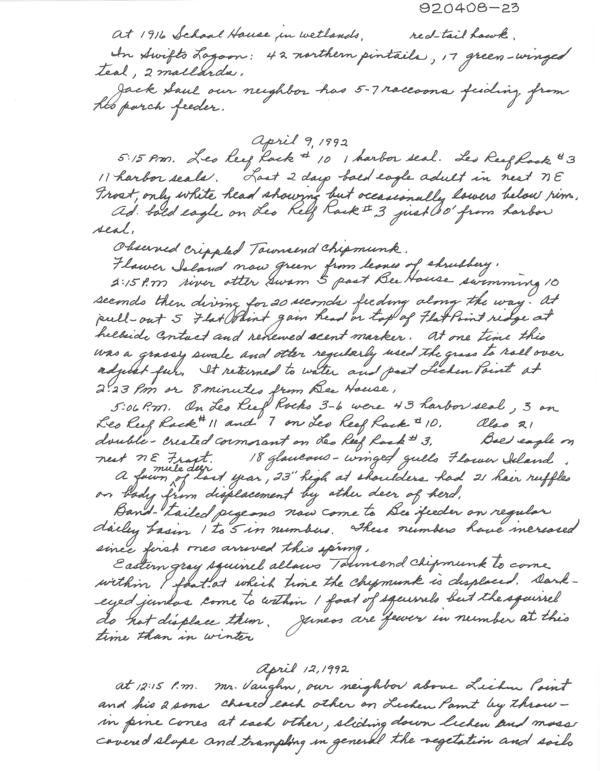 920408-23
At 1916 School House in wetlands, red-tail hawk.
In Swifts Lagoon: 42 northern pintails, 17 green-winged
teal, 2 mallards.
Jack Saul our neighbor has 5-7 raccoons feeding from
his porch feeder.
April 9, 1992
5:15 P.m. Leo Reef Rock #10 1 harbor seal. Leo Reef Rock #3
11 harbor seals. Last 2 days bald eagle adult in nest NE
Frost, only white head showing but occasionally lowers below rim.
Ad. bald eagle on Leo Reef Rock #3 just 60' from harbor
seal.
Observed crippled Townsend Chipmunk.
Flower Island now green from leaves of shrubbery.
2:15 P.m river otter swam S past Bee House swimming 10
seconds then diving for 20 seconds feeding along the way. At
pull-out S Flat Point gain head or top of Flat Point ridge at
hillside contact and renewed scent marker. At one time this
was a grassy swale and otter regularly used the grass to roll over
adjust fur. It returned to water and past Lichen Point at
2:23 Pm or 8 minutes from Bee House.
5:06 P.m. On Leo Reef Rocks 3-6 were 43 harbor seal, 3 on
Leo Reef Rock #11 and 7 on Leo Reef Rock #10. Also 21
double-crested cormorant on Leo Reef Rock #3. eagle on
nest NE Frost. 18 glaucous-winged gulls Flower Island.
A fawn mule deer of last year, 23" high at shoulders had 21 hair ruffles
on body from displacement by other deer of herd.
Band-tailed pigeons now come to Bee feeder on regular
dailey basin 1 to 5 in number. These numbers have increased
since first ones arrived this spring.
Eastern gray squirrel allows Townsend chipmunk to come
within 1 foot at which time the chipmunk is displaced. Dark-
eyed juncos come to within 1 foot of squirrels but the squirrel
do not displace them. Juncos are fewer in number at this
time than in winter
April 12, 1992
At 12:15 P.m. Mr. Vaughn, our neighbor above Lichen Point
and his 2 sons chased each other on Lichen Point by throw-
in pine cones at each other, sliding down lichen and moss
covered slope and trampling in general the vegetation and soils